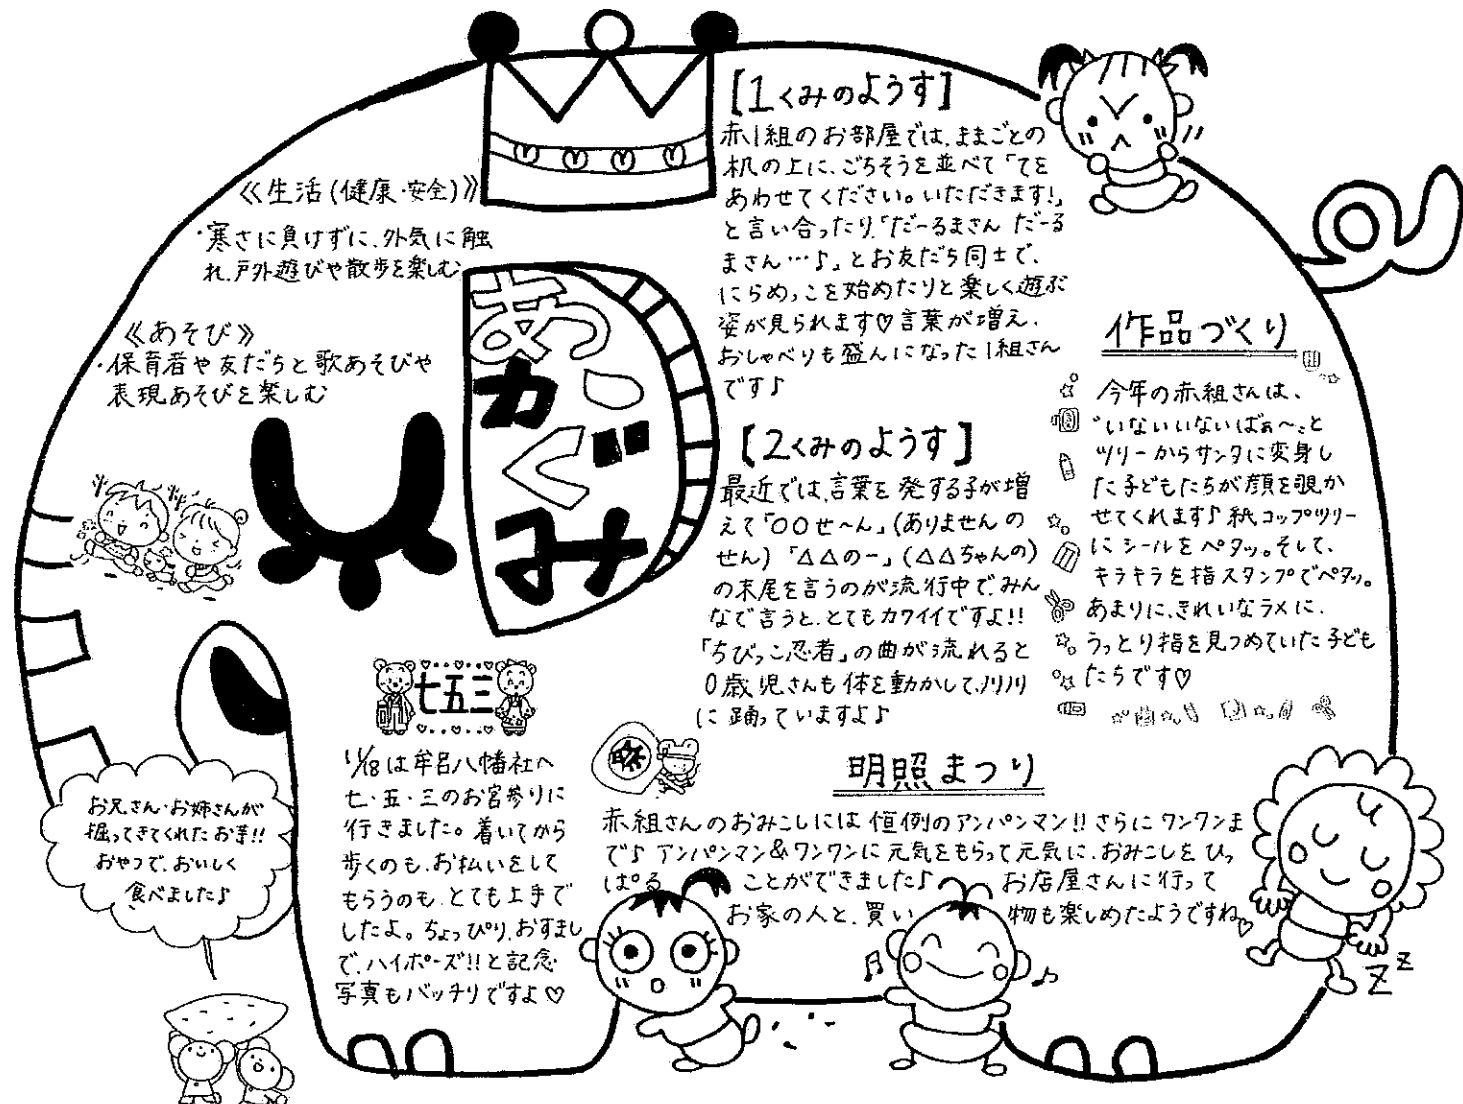 あかぐみ
《生活(健康・安全)》
・寒さに負けずに、外気に触
れ、戸外遊びや散歩を楽しむ
《あそび》
・保育者や友だちと歌あそびや
表現あそびを楽しむ
【1くみのようす】
赤1組のお部屋では、ままごとの
机の上に、ごちそうを並べて「てを
あわせてください。いただきます!」
と言い合ったり、「だーるまさん だーる
まさん…♪」とお友だち同士で、
にらめっこを始めたりと楽しく遊ぶ
姿が見られます♡言葉が増え、
おしゃべりも盛んになった1組さん
です♪
【2くみのようす】
最近では、言葉を発する子が増
えて「〇〇せ〜ん」(ありませんの
せん)「△△のー」(△△ちゃんの)
の末尾を言うのが流行中で、みん
なで言うと、とてもカワイイですよ!!
「ちびっこ忍者」の曲が流れると
0歳児さんも体を動かして、ノリノリ
に踊っていますよ♪
作品づくり
今年の赤組さんは、
"いないいないばぁ〜"と
ツリーからサンタに変身し
た子どもたちが顔を覗か
せてくれます♪紙コップツリー
にシールをペタッ。そして、
キラキラを指スタンプでペタッ。
あまりに、きれいなラメに、
うっとり指を見つめていた子ども
たちです♡
七五三
11/18は牟呂八幡社へ
七・五・三のお宮参りに
行きました。着いてから
歩くのも、お払いをして
もらうのも、とても上手で
したよ。ちょっぴり、おすまし
で、ハイポーズ!!と記念
写真もバッチリですよ♡
お兄さん・お姉さんが
掘ってきてくれたお芋!!
おやつで、おいしく
食べました♪
祭
明照まつり
赤組さんのおみこしには恒例のアンパンマン!!さらにワンワンま
で♪アンパンマン&ワンワンに元気をもらって元気に、おみこしをひっ
ぱることができました♪お店屋さんに行って
お家の人と、買い物も楽しめたようですね♡
zz